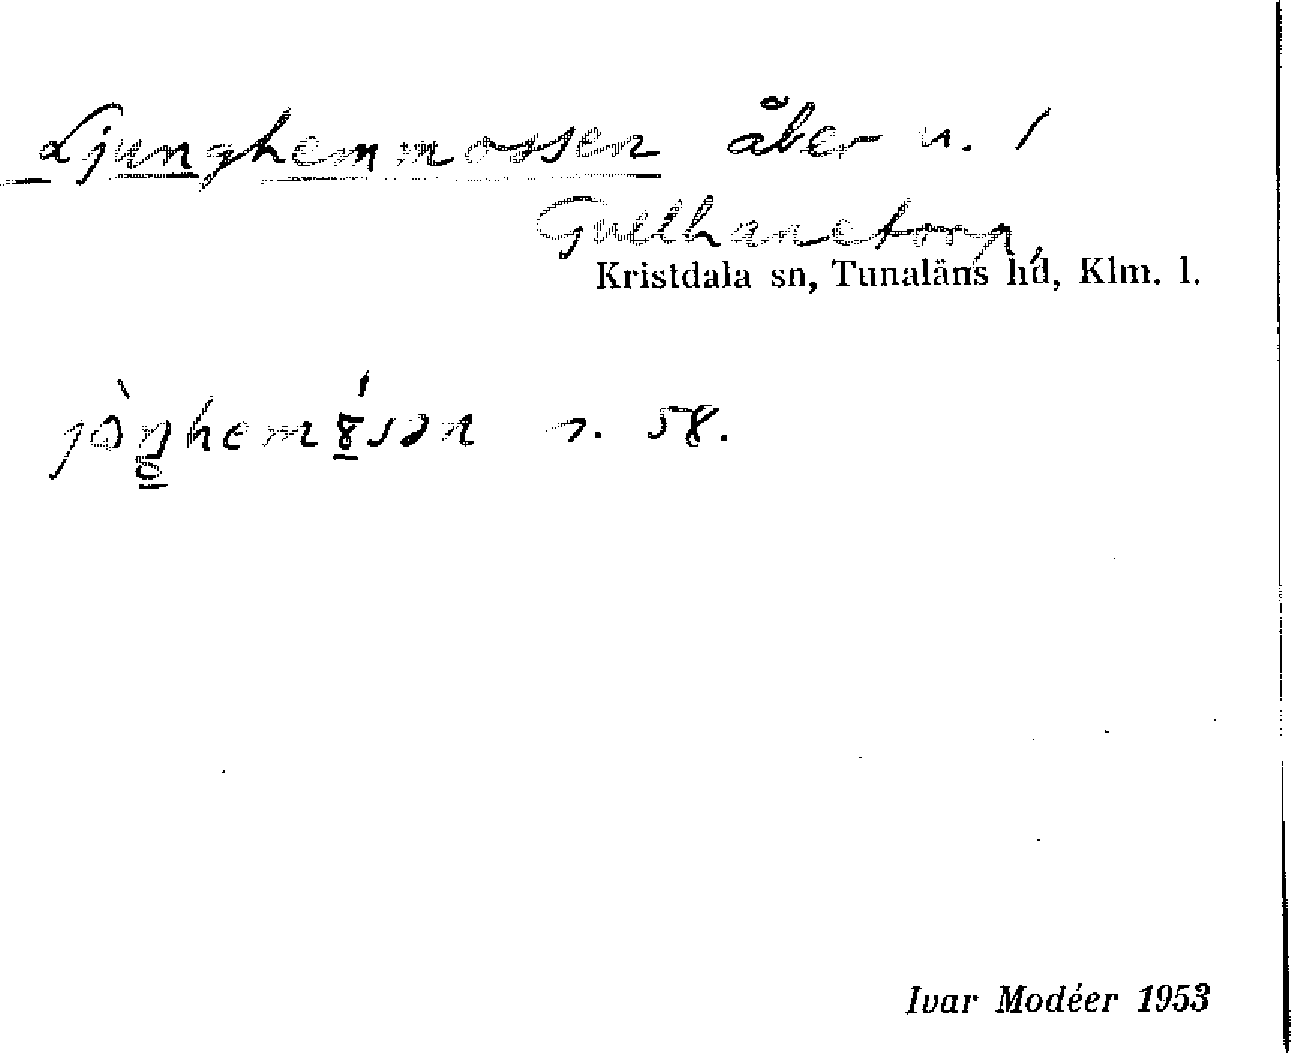 Ljunghemmossen åker n. 1
Gullhanetorp,
Kristdala sn, Tunaläns hd, Klm. l.
s. 58.
Ivar Modéer 1953